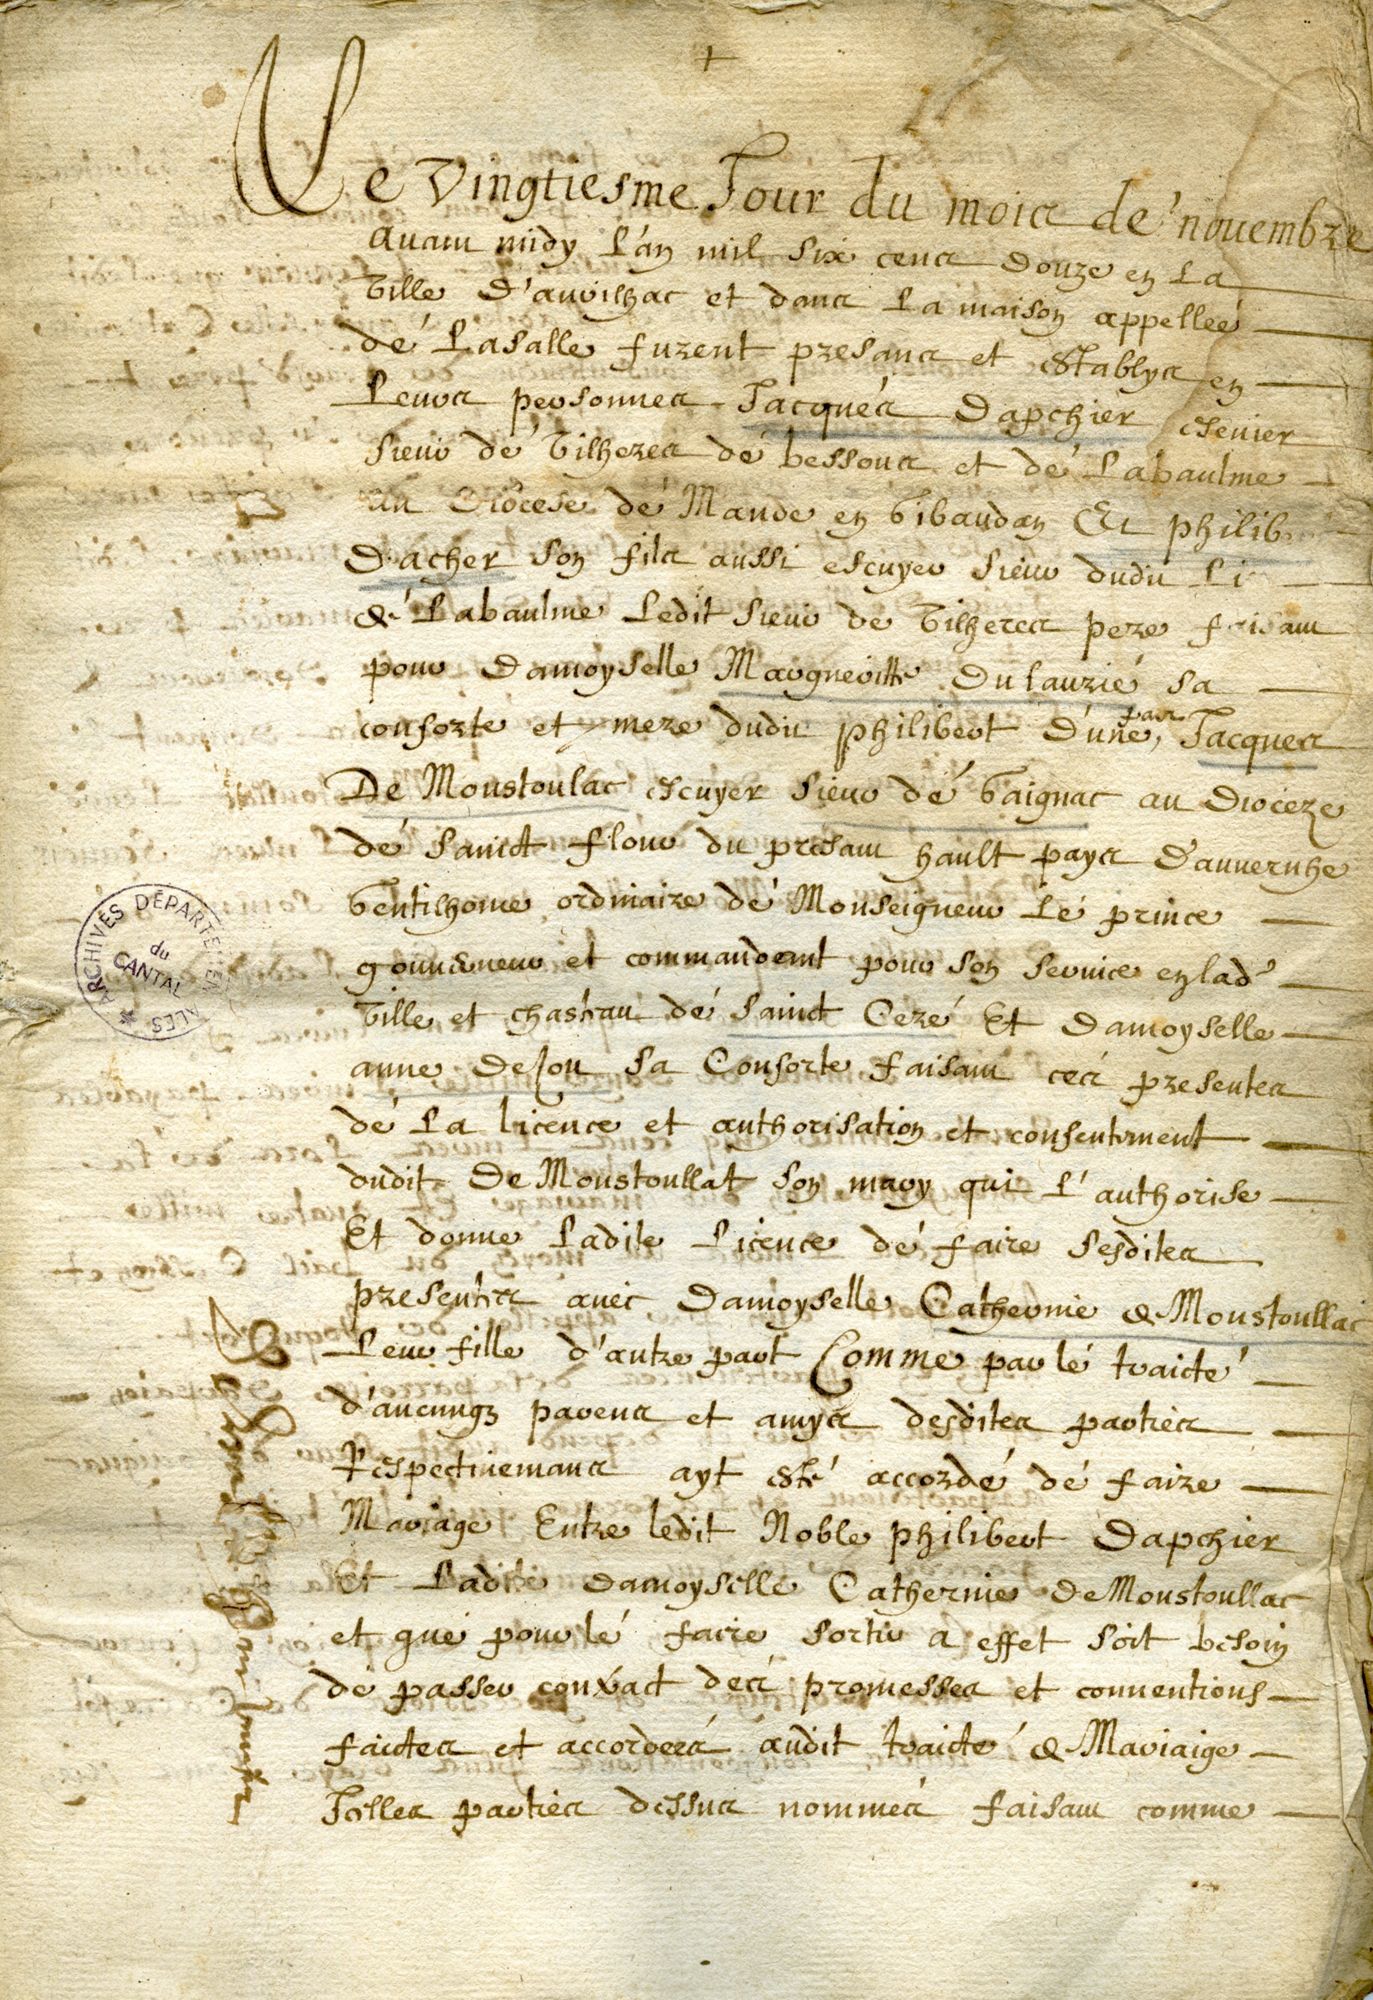 +
Le Vingtiesme Jour du mois de novembre
avant midy L'an mil six cens douze en La
Ville D'aurilhac et dans La maison appellée
de Lasalle furent presans et establys en
Leurs personnes Jacques Dapchier escuier
sieur de Vilheres de bessous et de Labaulme
au Diocese de Mande en Gibaudan Et philib
D'acher son fils aussi escuyer sieur dudit Li
de Labaulme Ledit sieur de Vilheres pere faisant
pour Damoyselle Margueritte Dulaurié sa
consorte et mere dudit philibert D'une part, Jacques
De Moustoulac escuyer sieur de Gaignac au Dioceze
de sainct flour du presant hault pays D'auvernhe
Gentilhome ordinaire de Monseigneur Le prince
gouverneur et commandant pour son service en lad.
Ville et chasteau de sainct Ceré Et Damoyselle
anne Delon sa Consorte faisant ces presentes
de La licence et authorisation et consentement
dudit De Moustoullat son mary qui L'authorise
Et donne Ladite Licence de faire sesdites
presentes avec Damoyselle Catherine de Moustoullac
Leur fille d'autre part Comme par le traicté
d'aucungz parens et amys desdites parties
Respectivemans ayt esté accordé de faire
Mariage Entre ledit Noble philibert Dapchier
Et Ladite damoyselle Catherine De Moustoullac
et que pour le faire sortir a effet soit besoin
de passer contract des promesses et conventions
faictes et accordees audit traicté de Mariaige
Icelles parties dessus nommés faisant comme
ARCHIVES DÉPARTEMENTALES
du
CANTAL